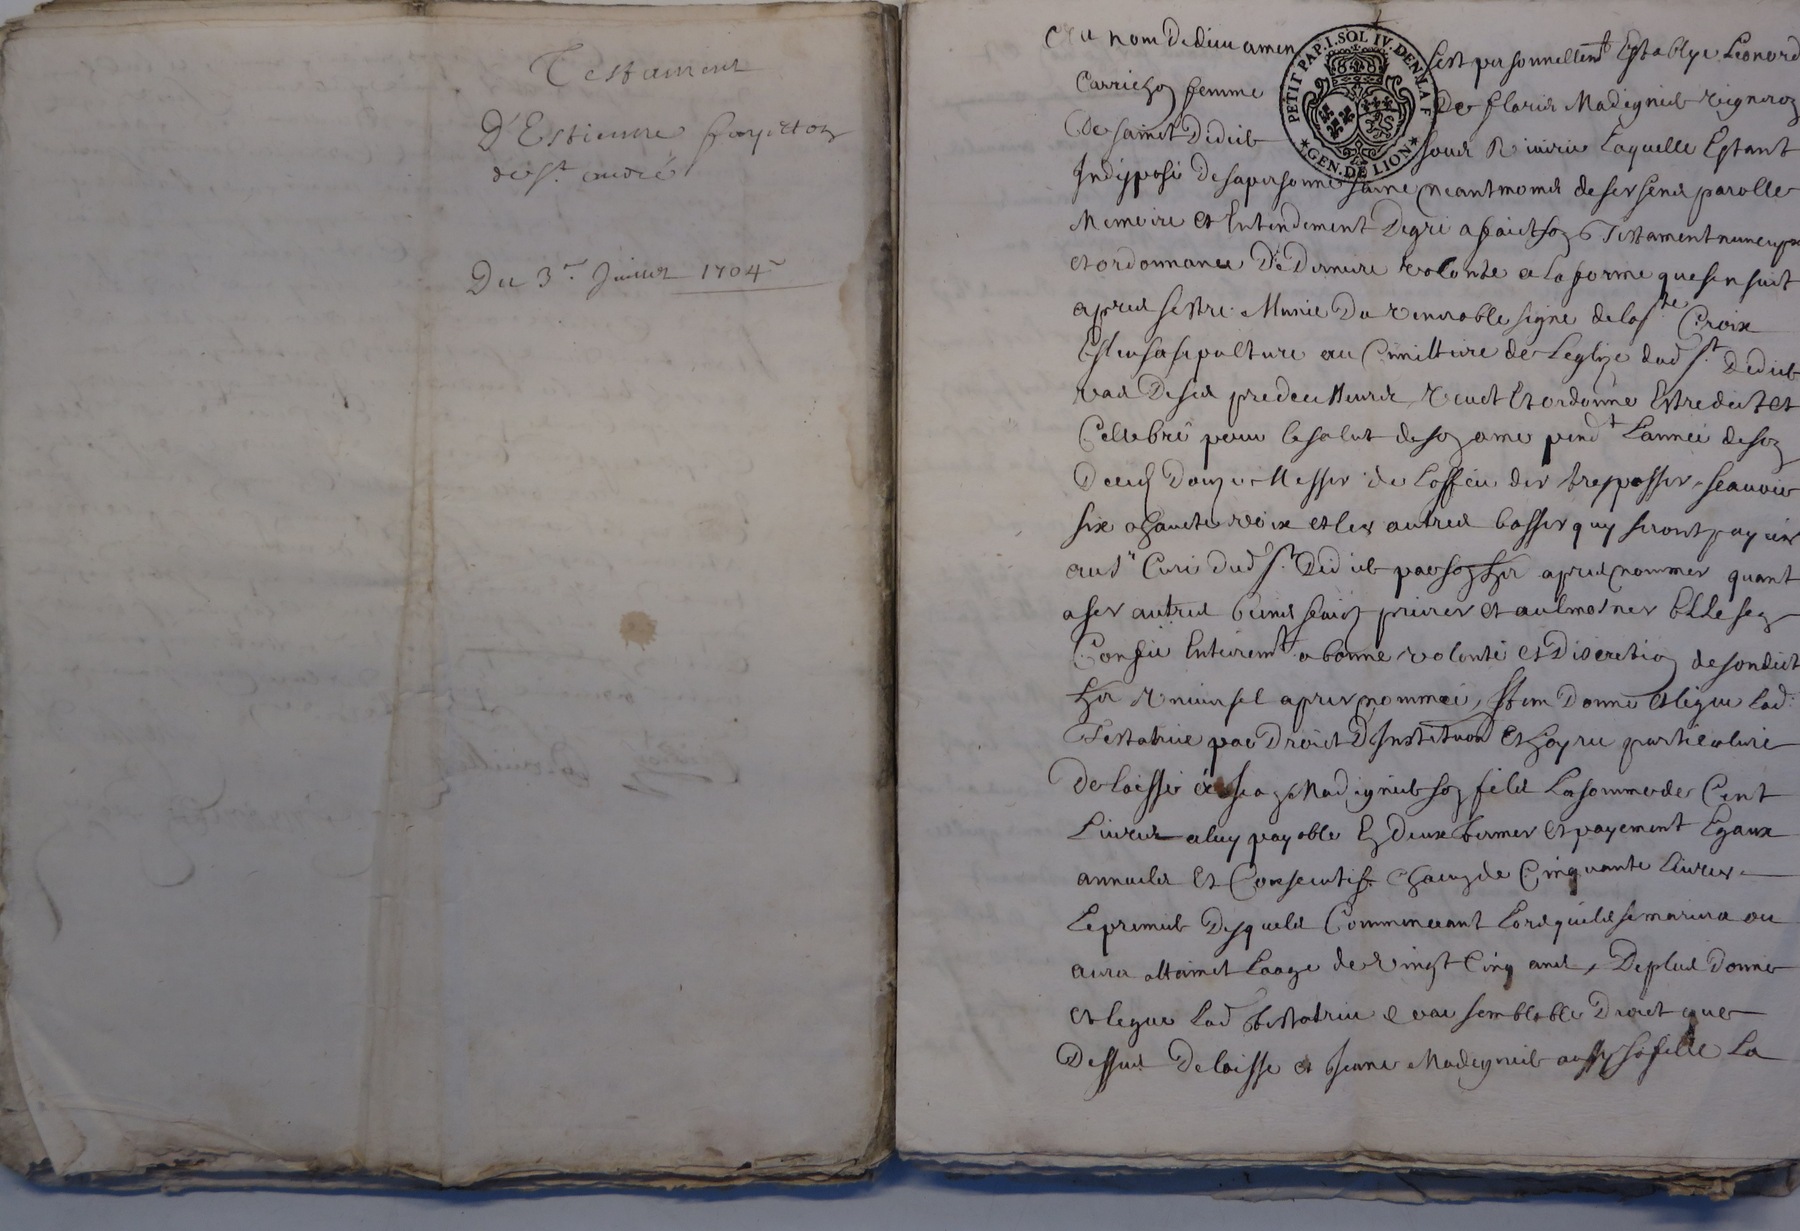 Testament
D'Estienne
de St. andré
Du 3e. Janvier 1704
Au nom de dieu amen s'est personnellemt Establye Leonord
Carrichon femme de Floris Madignieb vigneron
De sainct Didieb soub Riuirie Laquelle Estant
Indisposé de sa personne saine neantmoins de ses sens parolle
Memoire et Entendement De gré a faict son Testament nuncup
et ordonnance De Derniere volonté a la forme que s'en suit
apres s'estre Munie Du venerable signe de la ste Croix
Esleu sa sepulture au Cimittiere de Leglize dud St. Didieb
vas De ses predecesseurs, Veut Et ordonne Estre dict et
Cellebré pour le salut de son ame pendt Lannée de son
Deces Douze Messes de Loffice des trespasses, scauoir
six a haute voix et les autres basses quy seront payées
au sr Curé dud St. Didieb par son her apres nommer quant
a ses autres biens faicts prieres et aulmosnes Elle sen
Confie Entieremt a bonne volonté et Discretion de sondict
her vniuersel apres nommée, Item Donne et legue Lad.
Testatrice par Droict D'Institution Et hoyrie particuliere
Delaisse a Jean Madignieb son fils La somme de Cent
Liures a luy payable En Deux termes et payement Egaux
annuels Et Consecutifs chacun de Cinquante Liures
Le premieb Desquels Commencant Lorsqu'ils se mariera ou
aura attainct Laage de Vingt Cinq ans, De plus Donne
et legue Lad testatrice par semblable Droict que
Dessus Delaisse a Jeanne Madignieb aussy sa fille La
PETIT PAP. I. SOL IV. DEN. LA F
GEN. DE LION